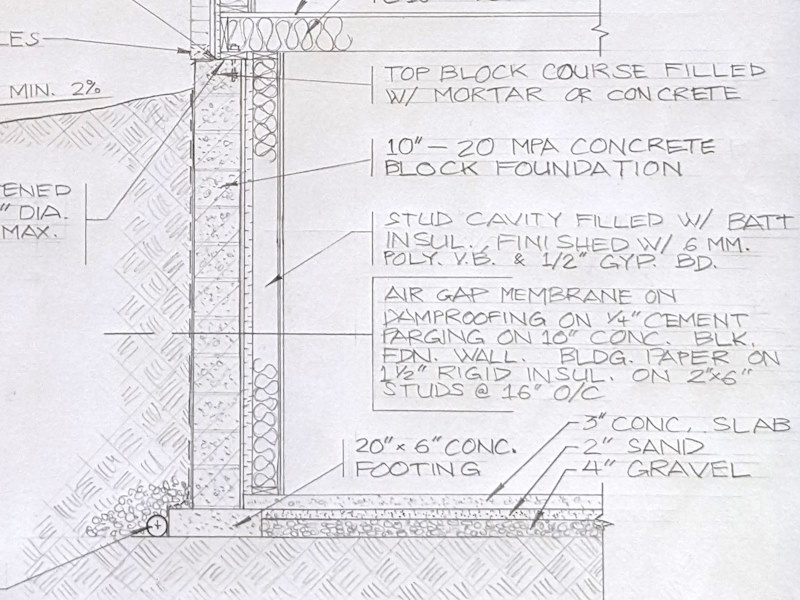 LES
MIN. 2%
ENED
" DIA.
MAX.
TOP BLOCK COURSE FILLED
W/ MORTAR OR CONCRETE
10" — 20 MPA CONCRETE
BLOCK FOUNDATION
STUD CAVITY FILLED W/ BATT
INSUL. FINISHED W/ 6 MM.
POLY. V.B. & 1/2" GYP. BD.
AIR GAP MEMBRANE ON
DAMPROOFING ON 1/4" CEMENT
PARGING ON 10" CONC. BLK.
FDN. WALL. BLDG. PAPER ON
1 1/2" RIGID INSUL. ON 2"x6"
STUDS @ 16" O/C
3" CONC. SLAB
2" SAND
4" GRAVEL
20" x 6" CONC.
FOOTING